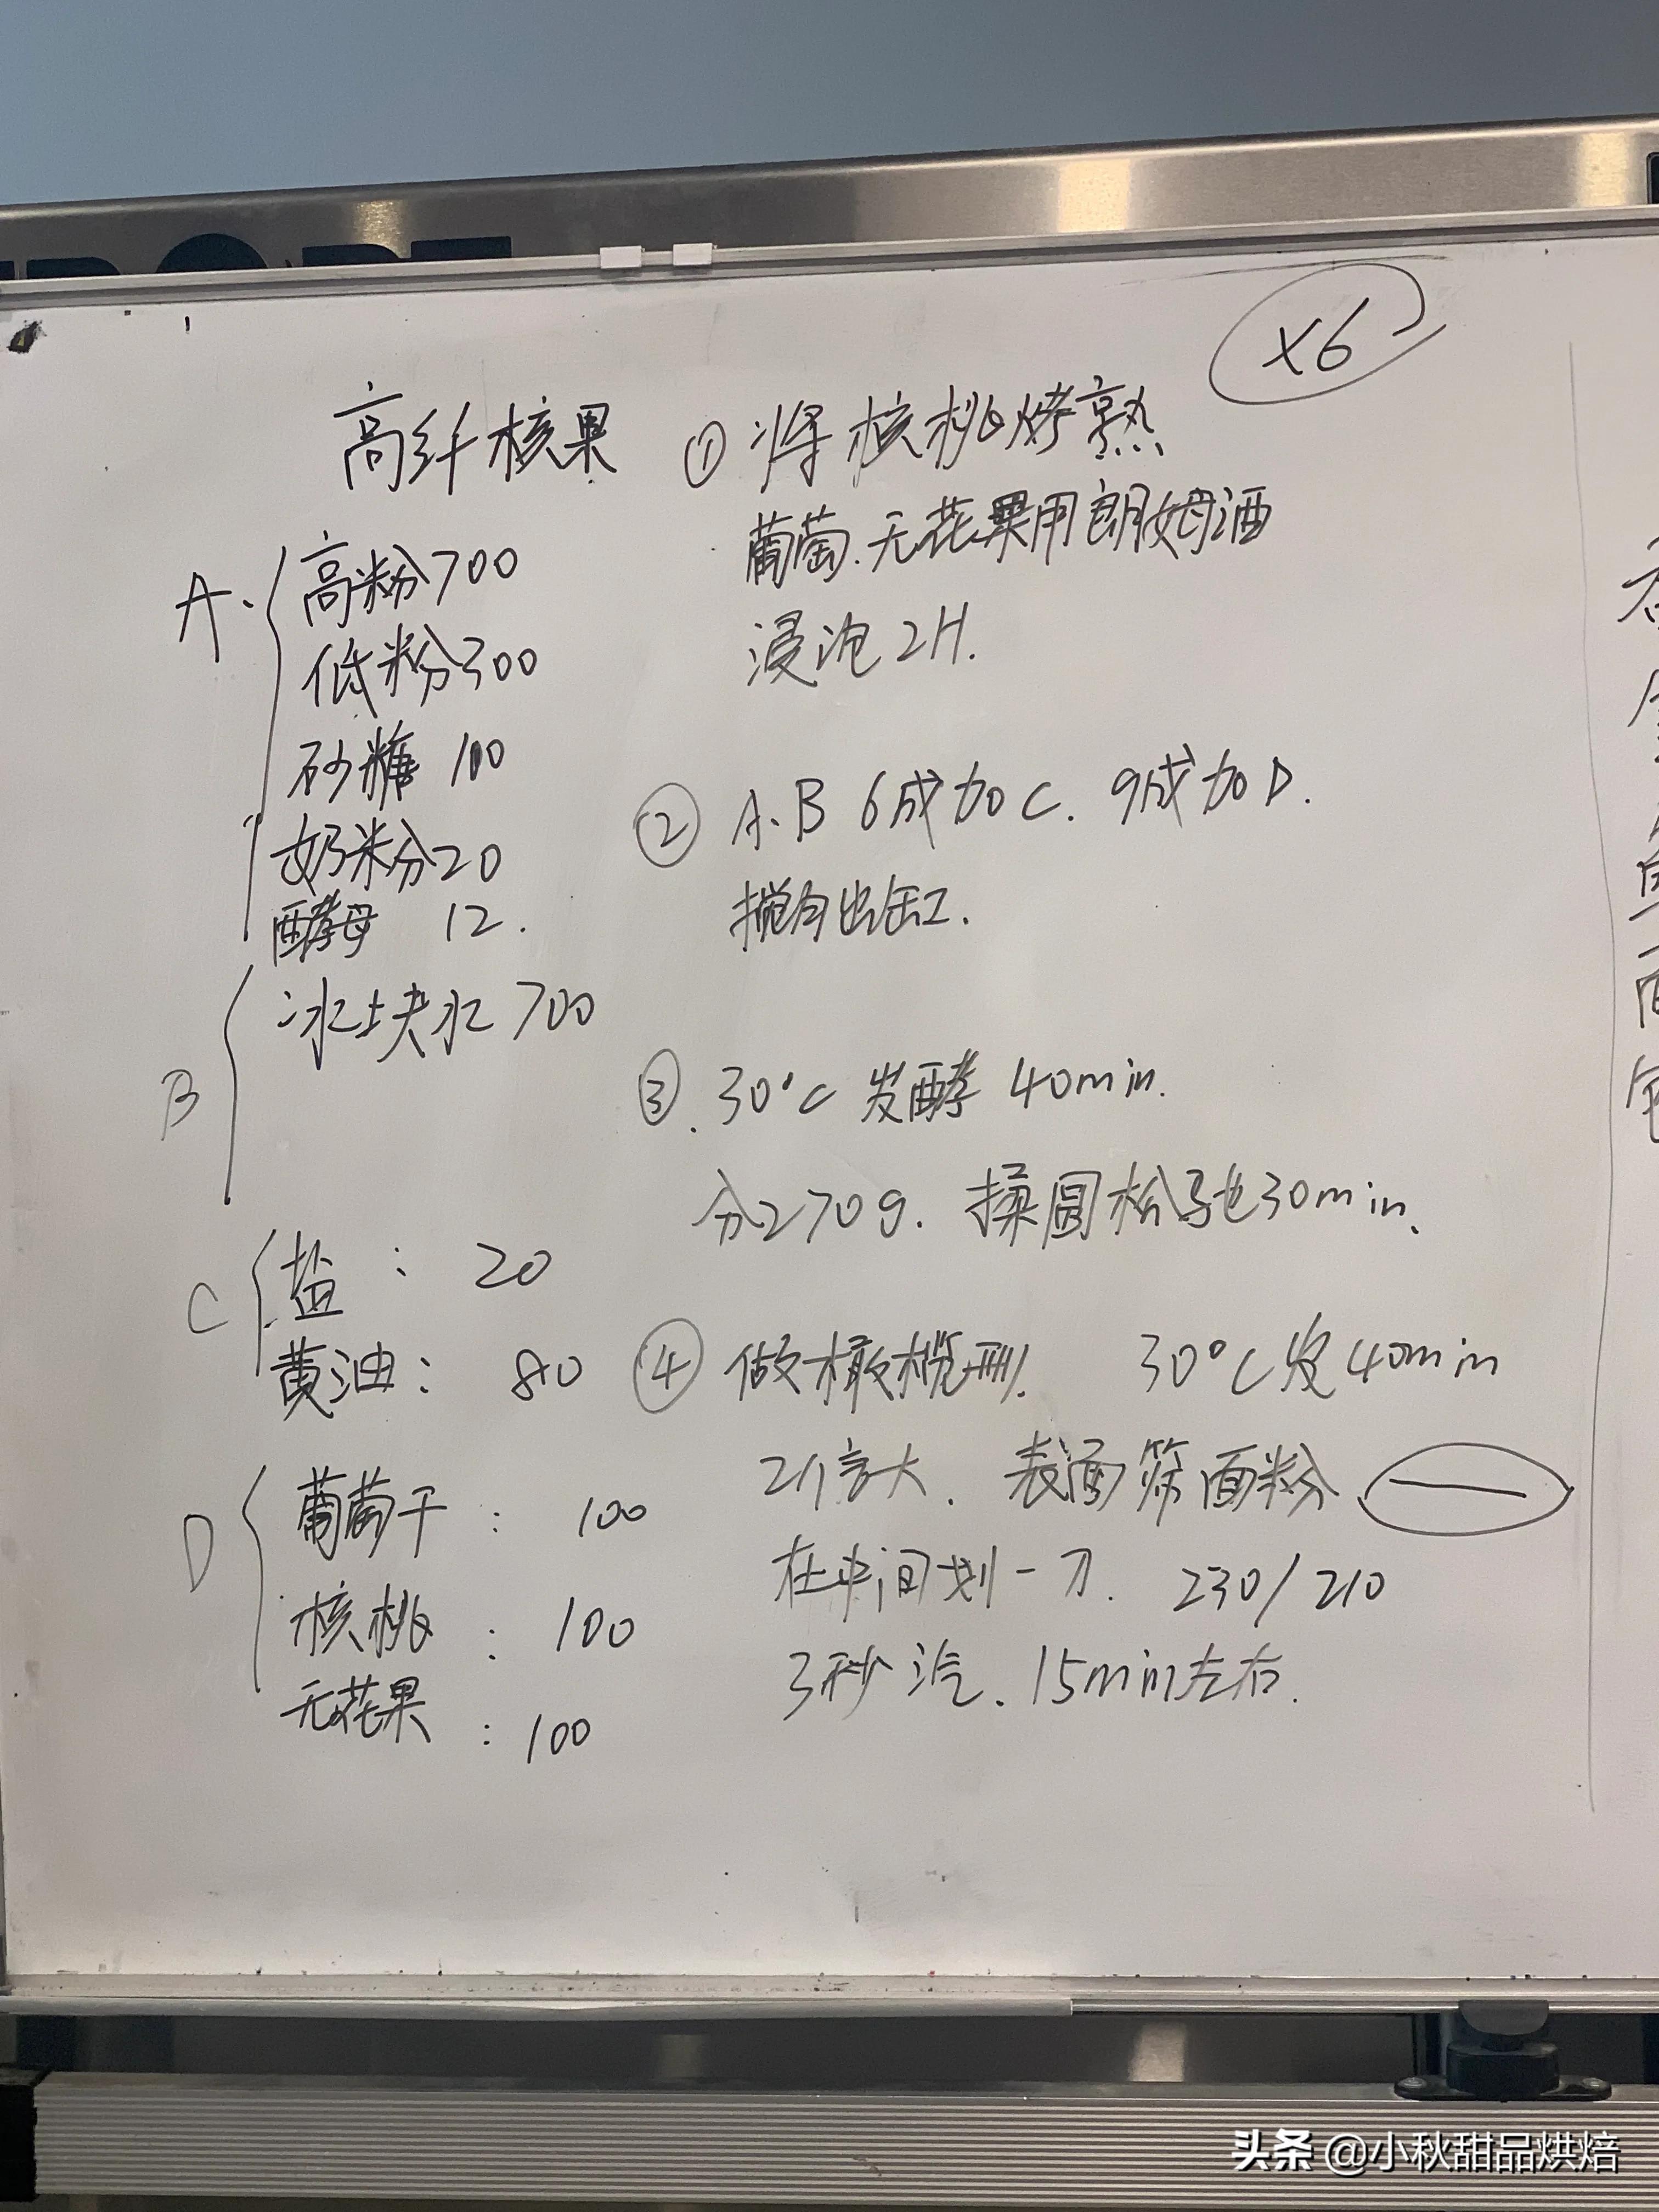 ×6
高纤核果
A. 高粉700
低粉300
砂糖 100
奶粉20
酵母 12.
B 冰块水700
C 盐 : 20
黄油: 80
D 葡萄干 : 100
核桃 : 100
无花果 : 100
① 将核桃烤熟
葡萄.无花果用朗姆酒
浸泡2H.
② A、B 6成加C. 9成加D.
搅匀出缸.
③. 30°C 发酵 40min.
分270g. 揉圆松驰30min.
④ 做橄榄型. 30°C发40min
2倍大. 表面筛面粉
在中间划一刀. 230/210
3秒汽. 15min左右.
头条 @小秋甜品烘焙